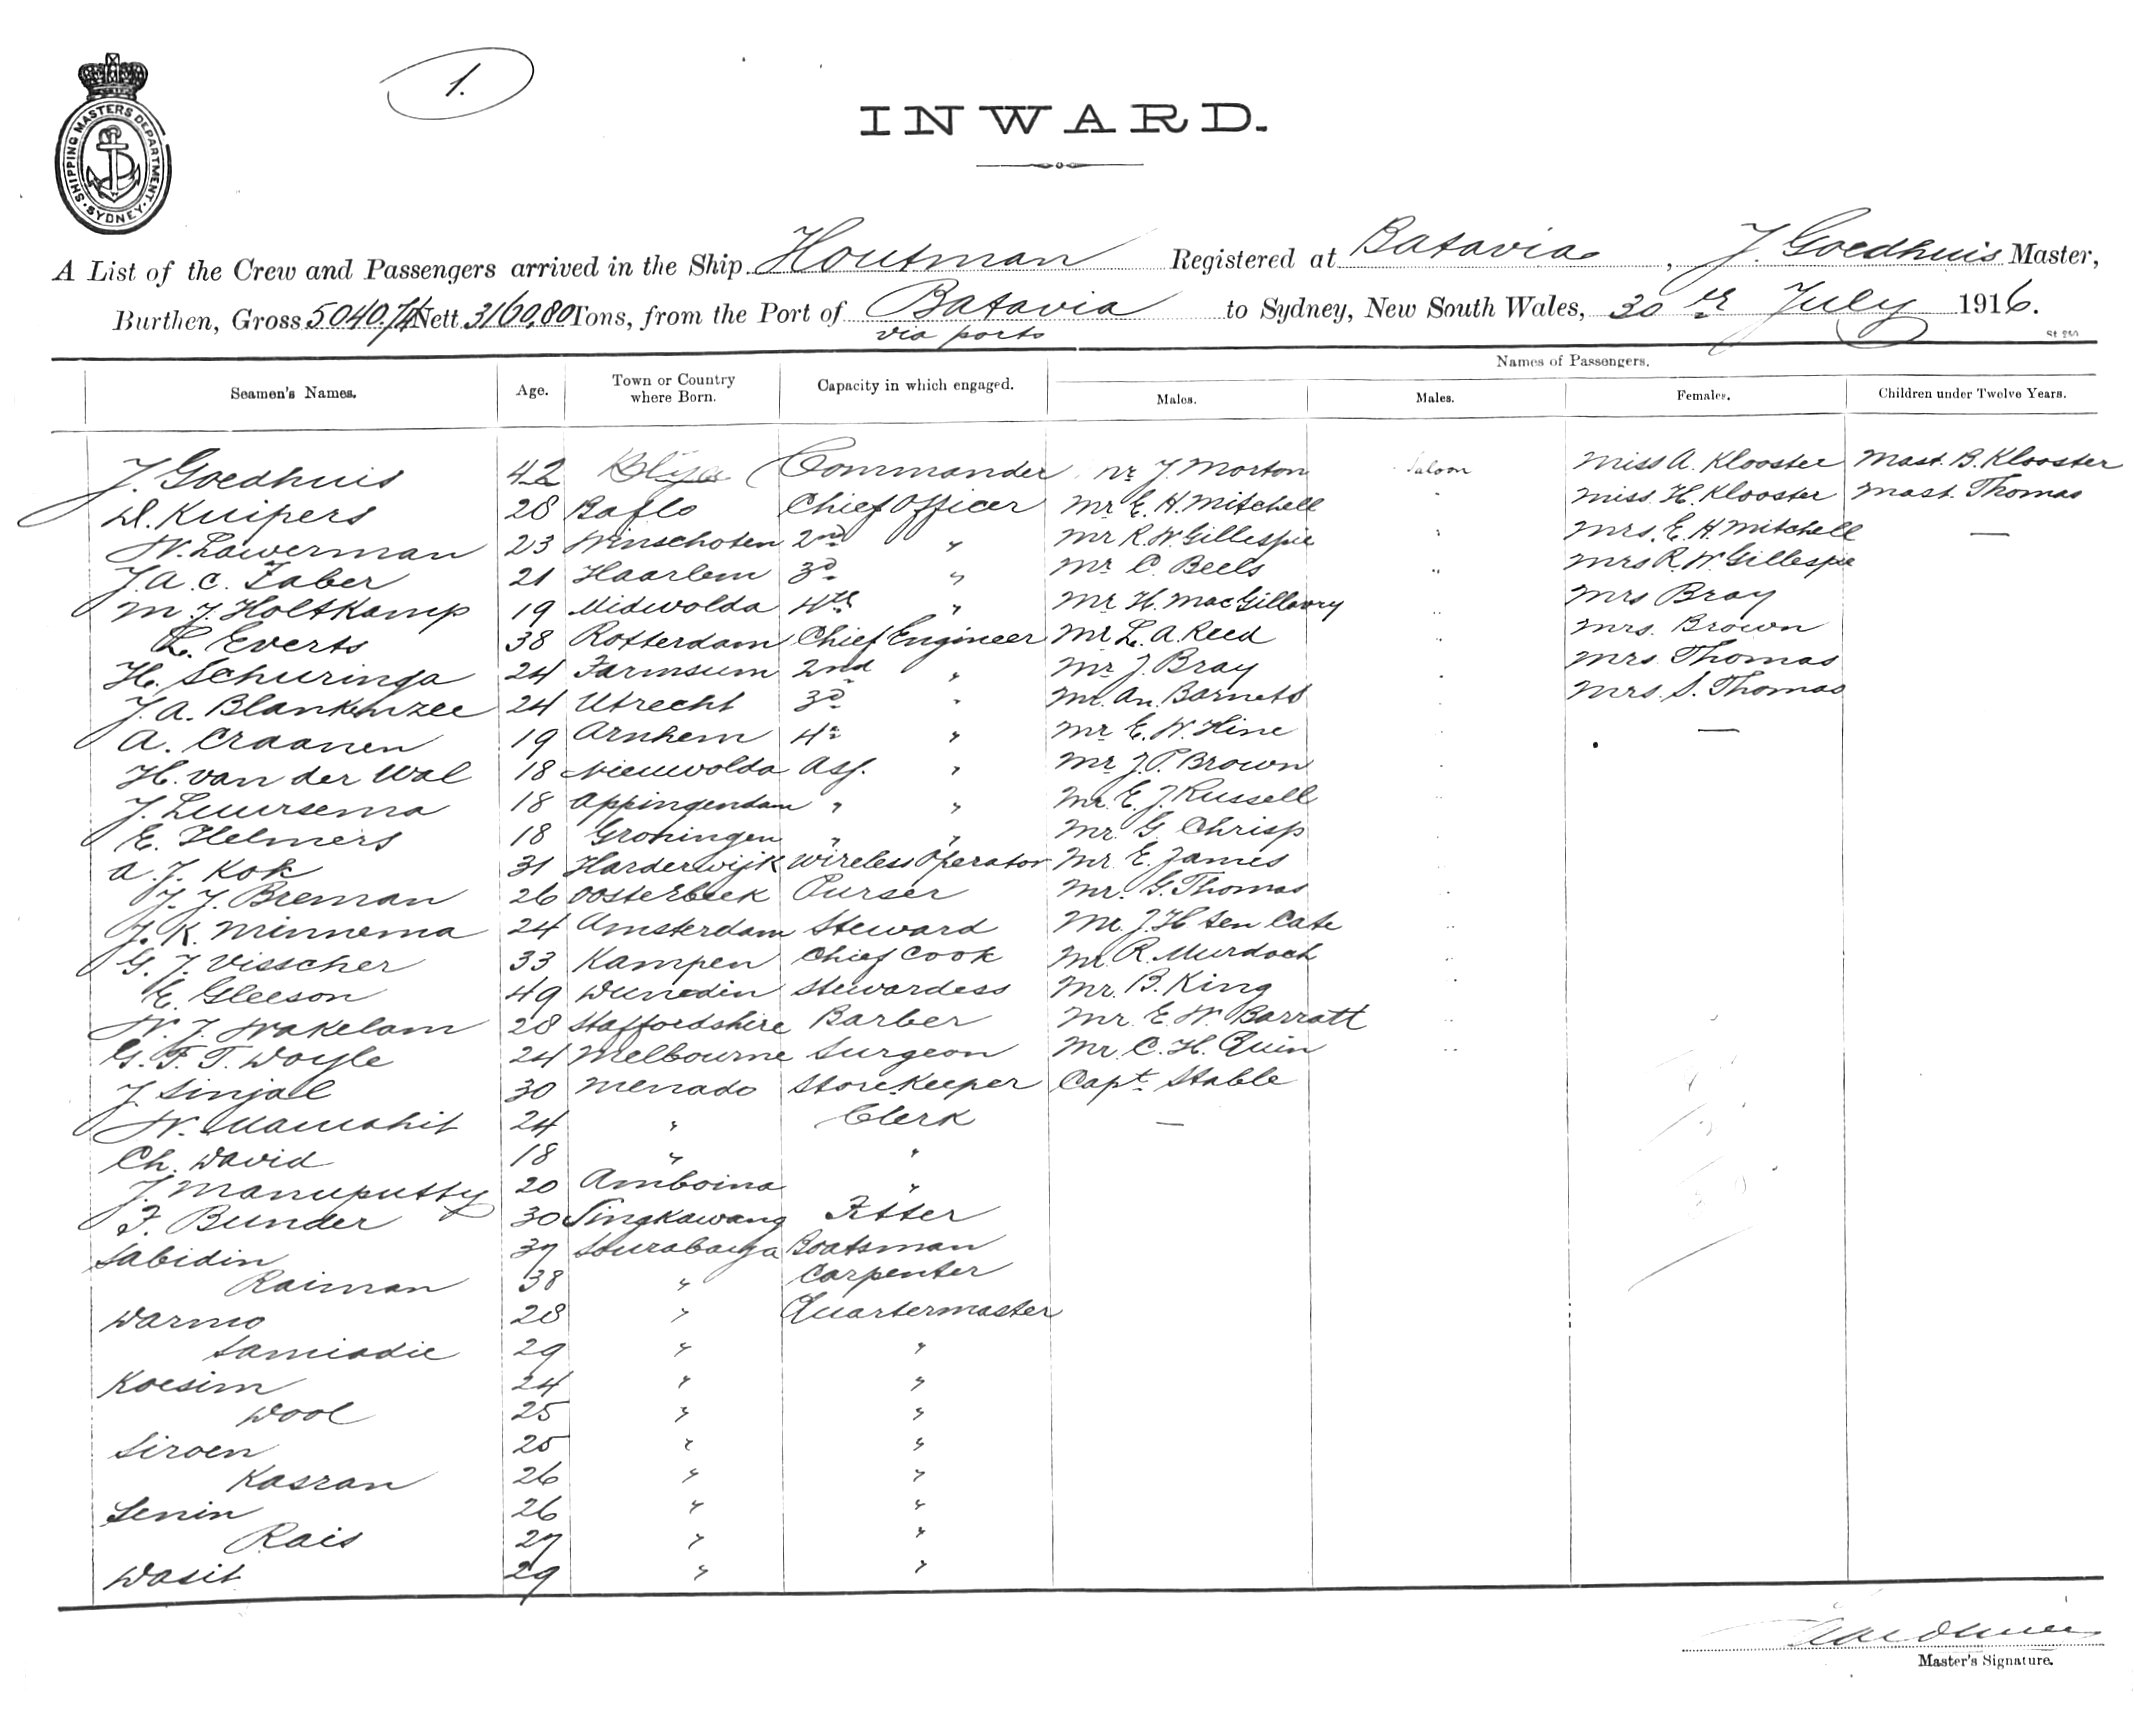 1.
SHIPPING MASTERS DEPARTMENT
SYDNEY
INWARD.
A List of the Crew and Passengers arrived in the Ship Houtman Registered at Batavia, J. Goedhuis Master,
Burthen, Gross 5040.74 Nett 3160,80 Tons, from the Port of Batavia to Sydney, New South Wales, 30th July 1916.
via ports
Names of Passengers.
Seamen's Names. Age. Town or Country where Born. Capacity in which engaged. Males. Males. Females. Children under Twelve Years.
J. Goedhuis 42 Commander Mr J. Morton Saloon Miss A. Klooster Mast. B. Klooster
D. Kuipers 28 Baflo Chief Officer Mr E. H. Mitchell " Miss H. Klooster Mast. Thomas
W. Lawerman 23 Winschoten 2nd " Mr R. W. Gillespie " Mrs. E. H. Mitchell —
J. A. C. Faber 21 Haarlem 3d " Mr C. Beels " Mrs R. W. Gillespie
M. J. Holtkamp 19 Midwolda 4th " Mr H. MacGillavry " Mrs Bray
L. Everts 38 Rotterdam Chief Engineer Mr L. A. Reed " Mrs. Brown
H. Schuringa 24 Farmsum 2nd " Mr J. Bray " Mrs. Thomas
J. A. Blankenzee 24 Utrecht 3d " Mr. An. Barnett " Mrs. S. Thomas
A. Craanen 19 Arnhem 4e " Mr E. W. Hine " —
H. van der Wal 18 Nieuwolda Ass. " Mr J. P. Brown "
J. Luursema 18 Appingendam " " Mr. E. J. Russell "
E. Helmers 18 Groningen " " Mr. G. Chrisp
A. J. Kok 31 Harderwijk Wireless Operator Mr. E. James
J. J. Breman 26 Oosterbeek Purser Mr. G. Thomas
J. K. Minnema 24 Amsterdam Steward Mr. J. H ten Cate "
G. J. Visscher 33 Kampen Chief Cook Mr. R. Murdoch "
E. Gleeson 49 Dunedin Stewardess Mr. B. King "
W. J. Wakelam 28 Staffordshire Barber Mr. E. W. Barratt "
G. F. T. Doyle 24 Melbourne Surgeon Mr. C. H. Quin "
J. Sinjall 30 Menado Storekeeper Capt. Stable
W. Mamahit 24 " Clerk —
Ch. David 18 " "
J. Manuputty 20 Amboina "
F. Bunder 30 Singkawang Fitter
Sabidin 37 Sourabaya Boatsman
Raiman 38 " Carpenter
Warmo 28 " Quartermaster
Samiadie 29 " "
Koesim 24 " "
Dool 25 " "
Siroen 25 " "
Kasran 26 " "
Senin 26 " "
Rais 27 " "
Wasit 29 " "
Master's Signature.